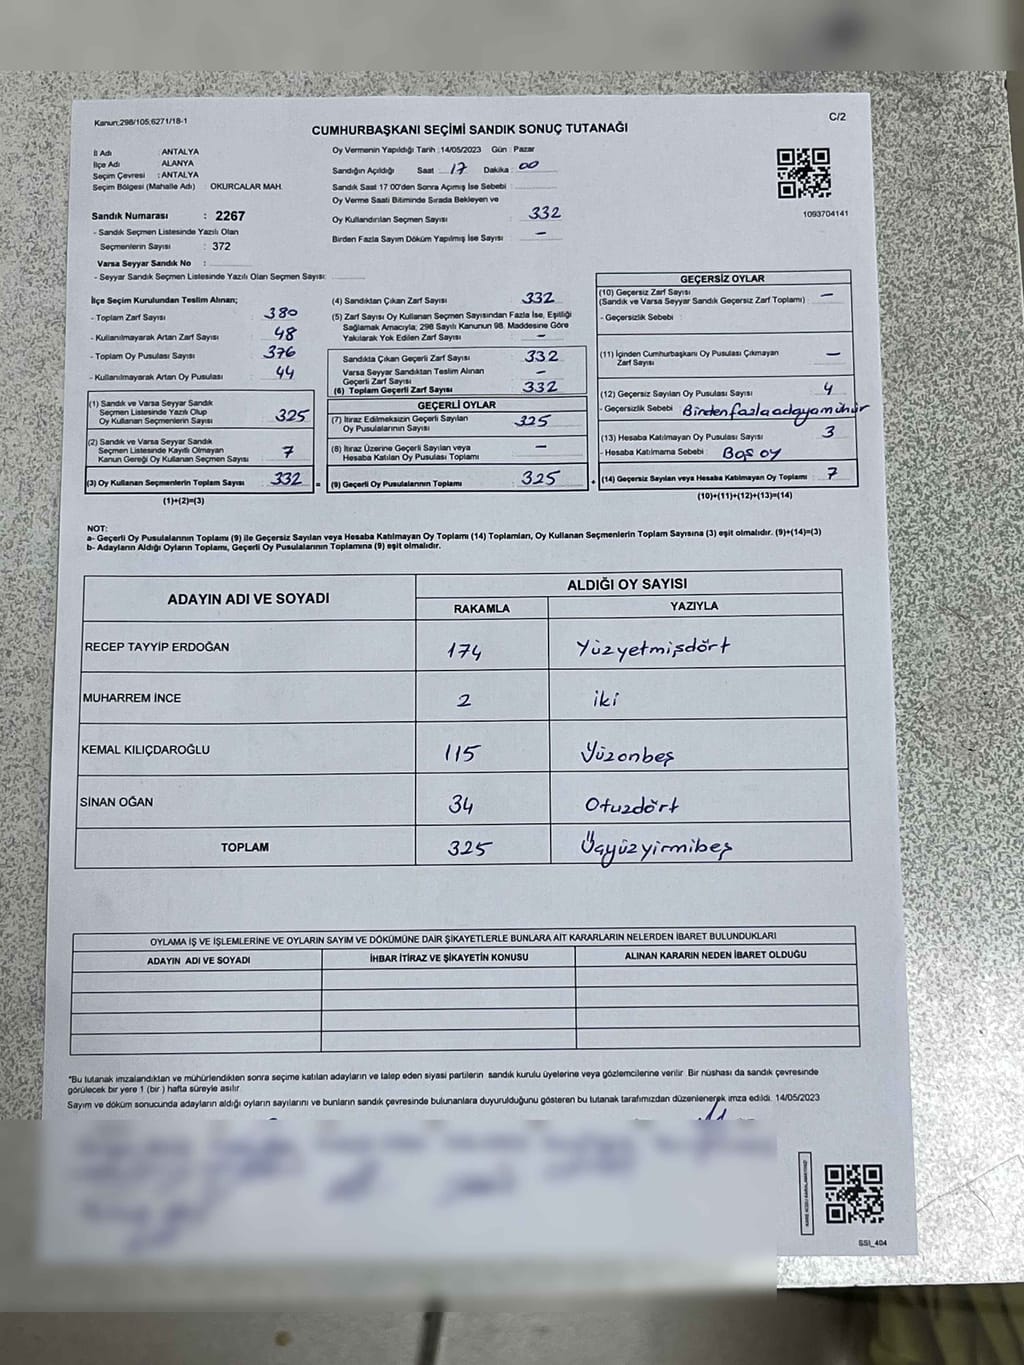 Kanun;298/105,6271/18-1
C/2
CUMHURBAŞKANI SEÇİMİ SANDIK SONUÇ TUTANAĞI
İl Adı : ANTALYA
İlçe Adı : ALANYA
Seçim Çevresi : ANTALYA
Seçim Bölgesi (Mahalle Adı) : OKURCALAR MAH.
Sandık Numarası : 2267
- Sandık Seçmen Listesinde Yazılı Olan
Seçmenlerin Sayısı : 372
Varsa Seyyar Sandık No :
- Seyyar Sandık Seçmen Listesinde Yazılı Olan Seçmen Sayısı:
Oy Vermenin Yapıldığı Tarih : 14/05/2023 Gün : Pazar
Sandığın Açıldığı Saat : 17 Dakika : 00
Sandık Saat 17.00'den Sonra Açımış İse Sebebi :
Oy Verme Saati Bitiminde Sırada Bekleyen ve
Oy Kullandırılan Seçmen Sayısı : 332
Birden Fazla Sayım Döküm Yapılmış İse Sayısı : -
1093704141
İlçe Seçim Kurulundan Teslim Alınan;
- Toplam Zarf Sayısı : 380
- Kullanılmayarak Artan Zarf Sayısı : 48
- Toplam Oy Pusulası Sayısı : 376
- Kullanılmayarak Artan Oy Pusulası : 44
(1) Sandık ve Varsa Seyyar Sandık
Seçmen Listesinde Yazılı Olup
Oy Kullanan Seçmenlerin Sayısı : 325
(2) Sandık ve Varsa Seyyar Sandık
Seçmen Listesinde Kayıtlı Olmayan
Kanun Gereği Oy Kullanan Seçmen Sayısı : 7
(3) Oy Kullanan Seçmenlerin Toplam Sayısı : 332 =
(1)+(2)=(3)
(4) Sandıktan Çıkan Zarf Sayısı : 332
(5) Zarf Sayısı Oy Kullanan Seçmen Sayısından Fazla İse, Eşitliği
Sağlamak Amacıyla; 298 Sayılı Kanunun 98. Maddesine Göre
Yakılarak Yok Edilen Zarf Sayısı : -
Sandıkta Çıkan Geçerli Zarf Sayısı : 332
Varsa Seyyar Sandıktan Teslim Alınan
Geçerli Zarf Sayısı : -
(6) Toplam Geçerli Zarf Sayısı : 332
GEÇERLİ OYLAR
(7) İtiraz Edilmeksizin Geçerli Sayılan
Oy Pusulalarının Sayısı : 325
(8) İtiraz Üzerine Geçerli Sayılan veya
Hesaba Katılan Oy Pusulası Toplamı : -
(9) Geçerli Oy Pusulalarının Toplamı : 325 +
GEÇERSİZ OYLAR
(10) Geçersiz Zarf Sayısı : -
(Sandık ve Varsa Seyyar Sandık Geçersiz Zarf Toplamı)
- Geçersizlik Sebebi :
(11) İçinden Cumhurbaşkanı Oy Pusulası Çıkmayan
Zarf Sayısı : -
(12) Geçersiz Sayılan Oy Pusulası Sayısı : 4
- Geçersizlik Sebebi : Birden fazla adaya mühür
(13) Hesaba Katılmayan Oy Pusulası Sayısı : 3
- Hesaba Katılmama Sebebi : Boş oy
(14) Geçersiz Sayılan veya Hesaba Katılmayan Oy Toplamı : 7
(10)+(11)+(12)+(13)=(14)
NOT:
a- Geçerli Oy Pusulalarının Toplamı (9) ile Geçersiz Sayılan veya Hesaba Katılmayan Oy Toplamı (14) Toplamları, Oy Kullanan Seçmenlerin Toplam Sayısına (3) eşit olmalıdır. (9)+(14)=(3)
b- Adayların Aldığı Oyların Toplamı, Geçerli Oy Pusulalarının Toplamına (9) eşit olmalıdır.
ADAYIN ADI VE SOYADI ALDIĞI OY SAYISI
RAKAMLA YAZIYLA
RECEP TAYYİP ERDOĞAN 174 Yüzyetmişdört
MUHARREM İNCE 2 iki
KEMAL KILIÇDAROĞLU 115 Yüzonbeş
SİNAN OĞAN 34 Otuzdört
TOPLAM 325 Üçyüzyirmibeş
OYLAMA İŞ VE İŞLEMLERİNE VE OYLARIN SAYIM VE DÖKÜMÜNE DAİR ŞİKAYETLERLE BUNLARA AİT KARARLARIN NELERDEN İBARET BULUNDUKLARI
ADAYIN ADI VE SOYADI İHBAR İTİRAZ VE ŞİKAYETİN KONUSU ALINAN KARARIN NEDEN İBARET OLDUĞU
*Bu tutanak imzalandıktan ve mühürlendikten sonra seçime katılan adayların ve talep eden siyasi partilerin sandık kurulu üyelerine veya gözlemcilerine verilir. Bir nüshası da sandık çevresinde
görülecek bir yere 1 (bir ) hafta süreyle asılır.
Sayım ve döküm sonucunda adayların aldığı oyların sayılarını ve bunların sandık çevresinde bulunanlara duyurulduğunu gösteren bu tutanak tarafımızdan düzenlenerek imza edildi. 14/05/2023
SSI_404